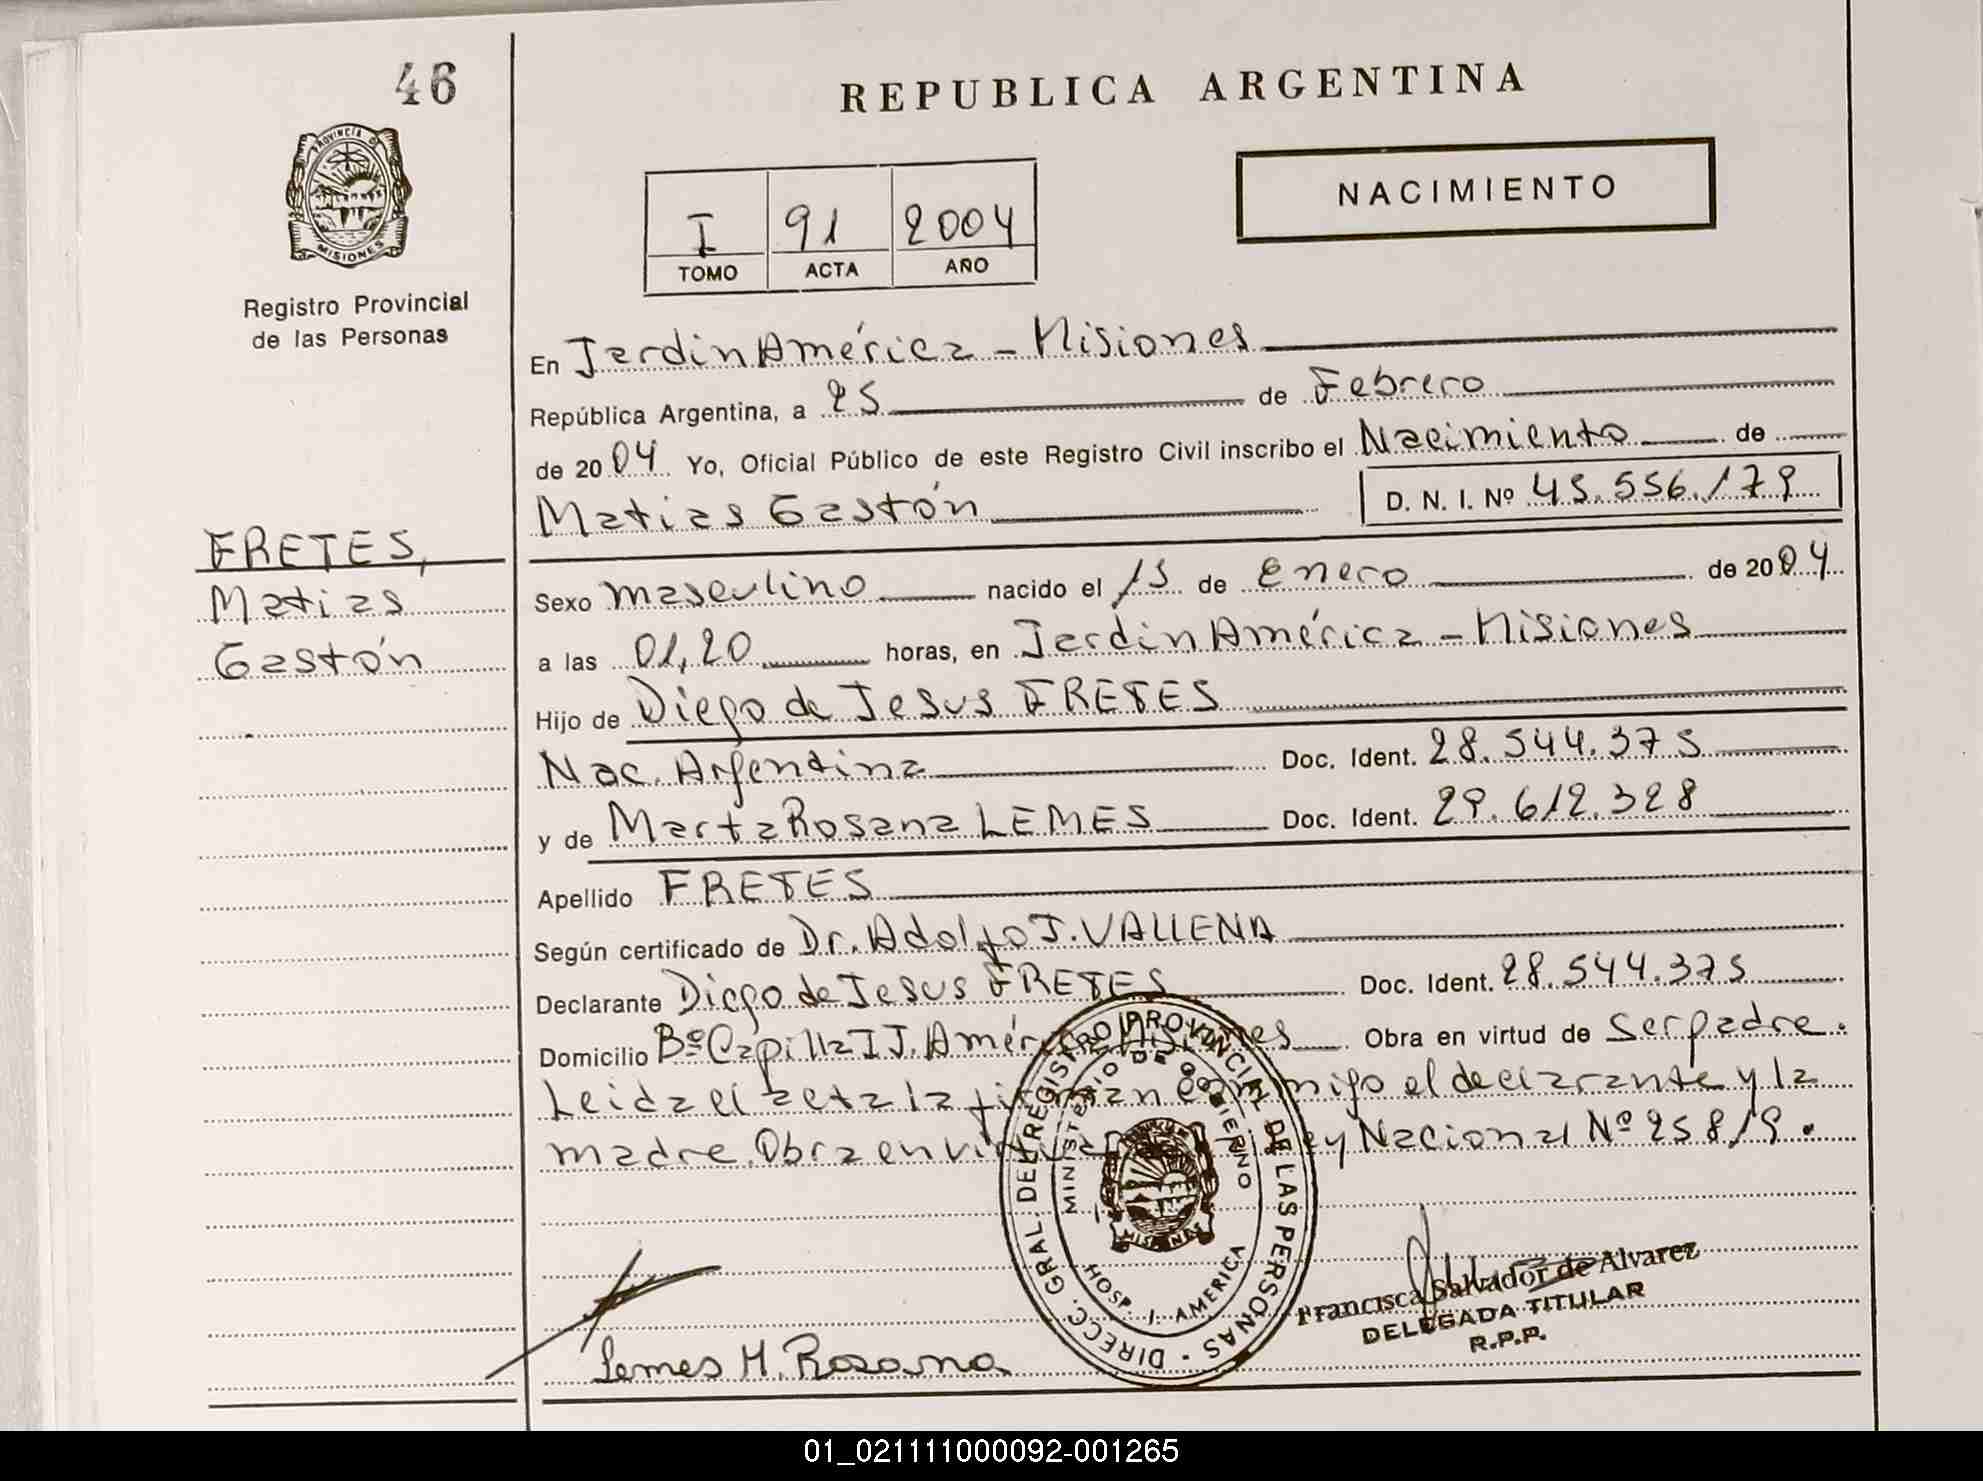 46
REPUBLICA ARGENTINA
PROVINCIA DE
MISIONES
NACIMIENTO
I 91 2004
TOMO ACTA AÑO
Registro Provincial
de las Personas
En Jardin América - Misiones
República Argentina, a 25 de Febrero
de 2004 Yo, Oficial Público de este Registro Civil inscribo el Nacimiento de
Matias Gastón D. N. I. Nº 45.556.179
FRETES,
Matias
Gastón
Sexo masculino nacido el 15 de Enero de 2004
a las 01,20 horas, en Jardin América - Misiones
Hijo de Diego de Jesus FRETES
Nac. Argentina Doc. Ident. 28.544.375
y de Marta Rosana LEMES Doc. Ident. 29.612.328
Apellido FRETES
Según certificado de Dr. Adolfo J. VALLENA
Declarante Diego de Jesus FRETES Doc. Ident. 28.544.375
Domicilio Bº Capilla II J. América Misiones Obra en virtud de Ser padre.
Leida el acta la firman conmigo el declarante y la
madre. Obra en virtud Ley Nacional Nº 25819.
DIRECC. GRAL. DEL REGISTRO PROVINCIAL DE LAS PERSONAS
MINISTERIO DE GOBIERNO
MISIONES
HOSP. J. AMERICA
Francisca Salvador de Alvarez
DELEGADA TITULAR
R.P.P.
Lemes M. Rosana
01_021111000092-001265